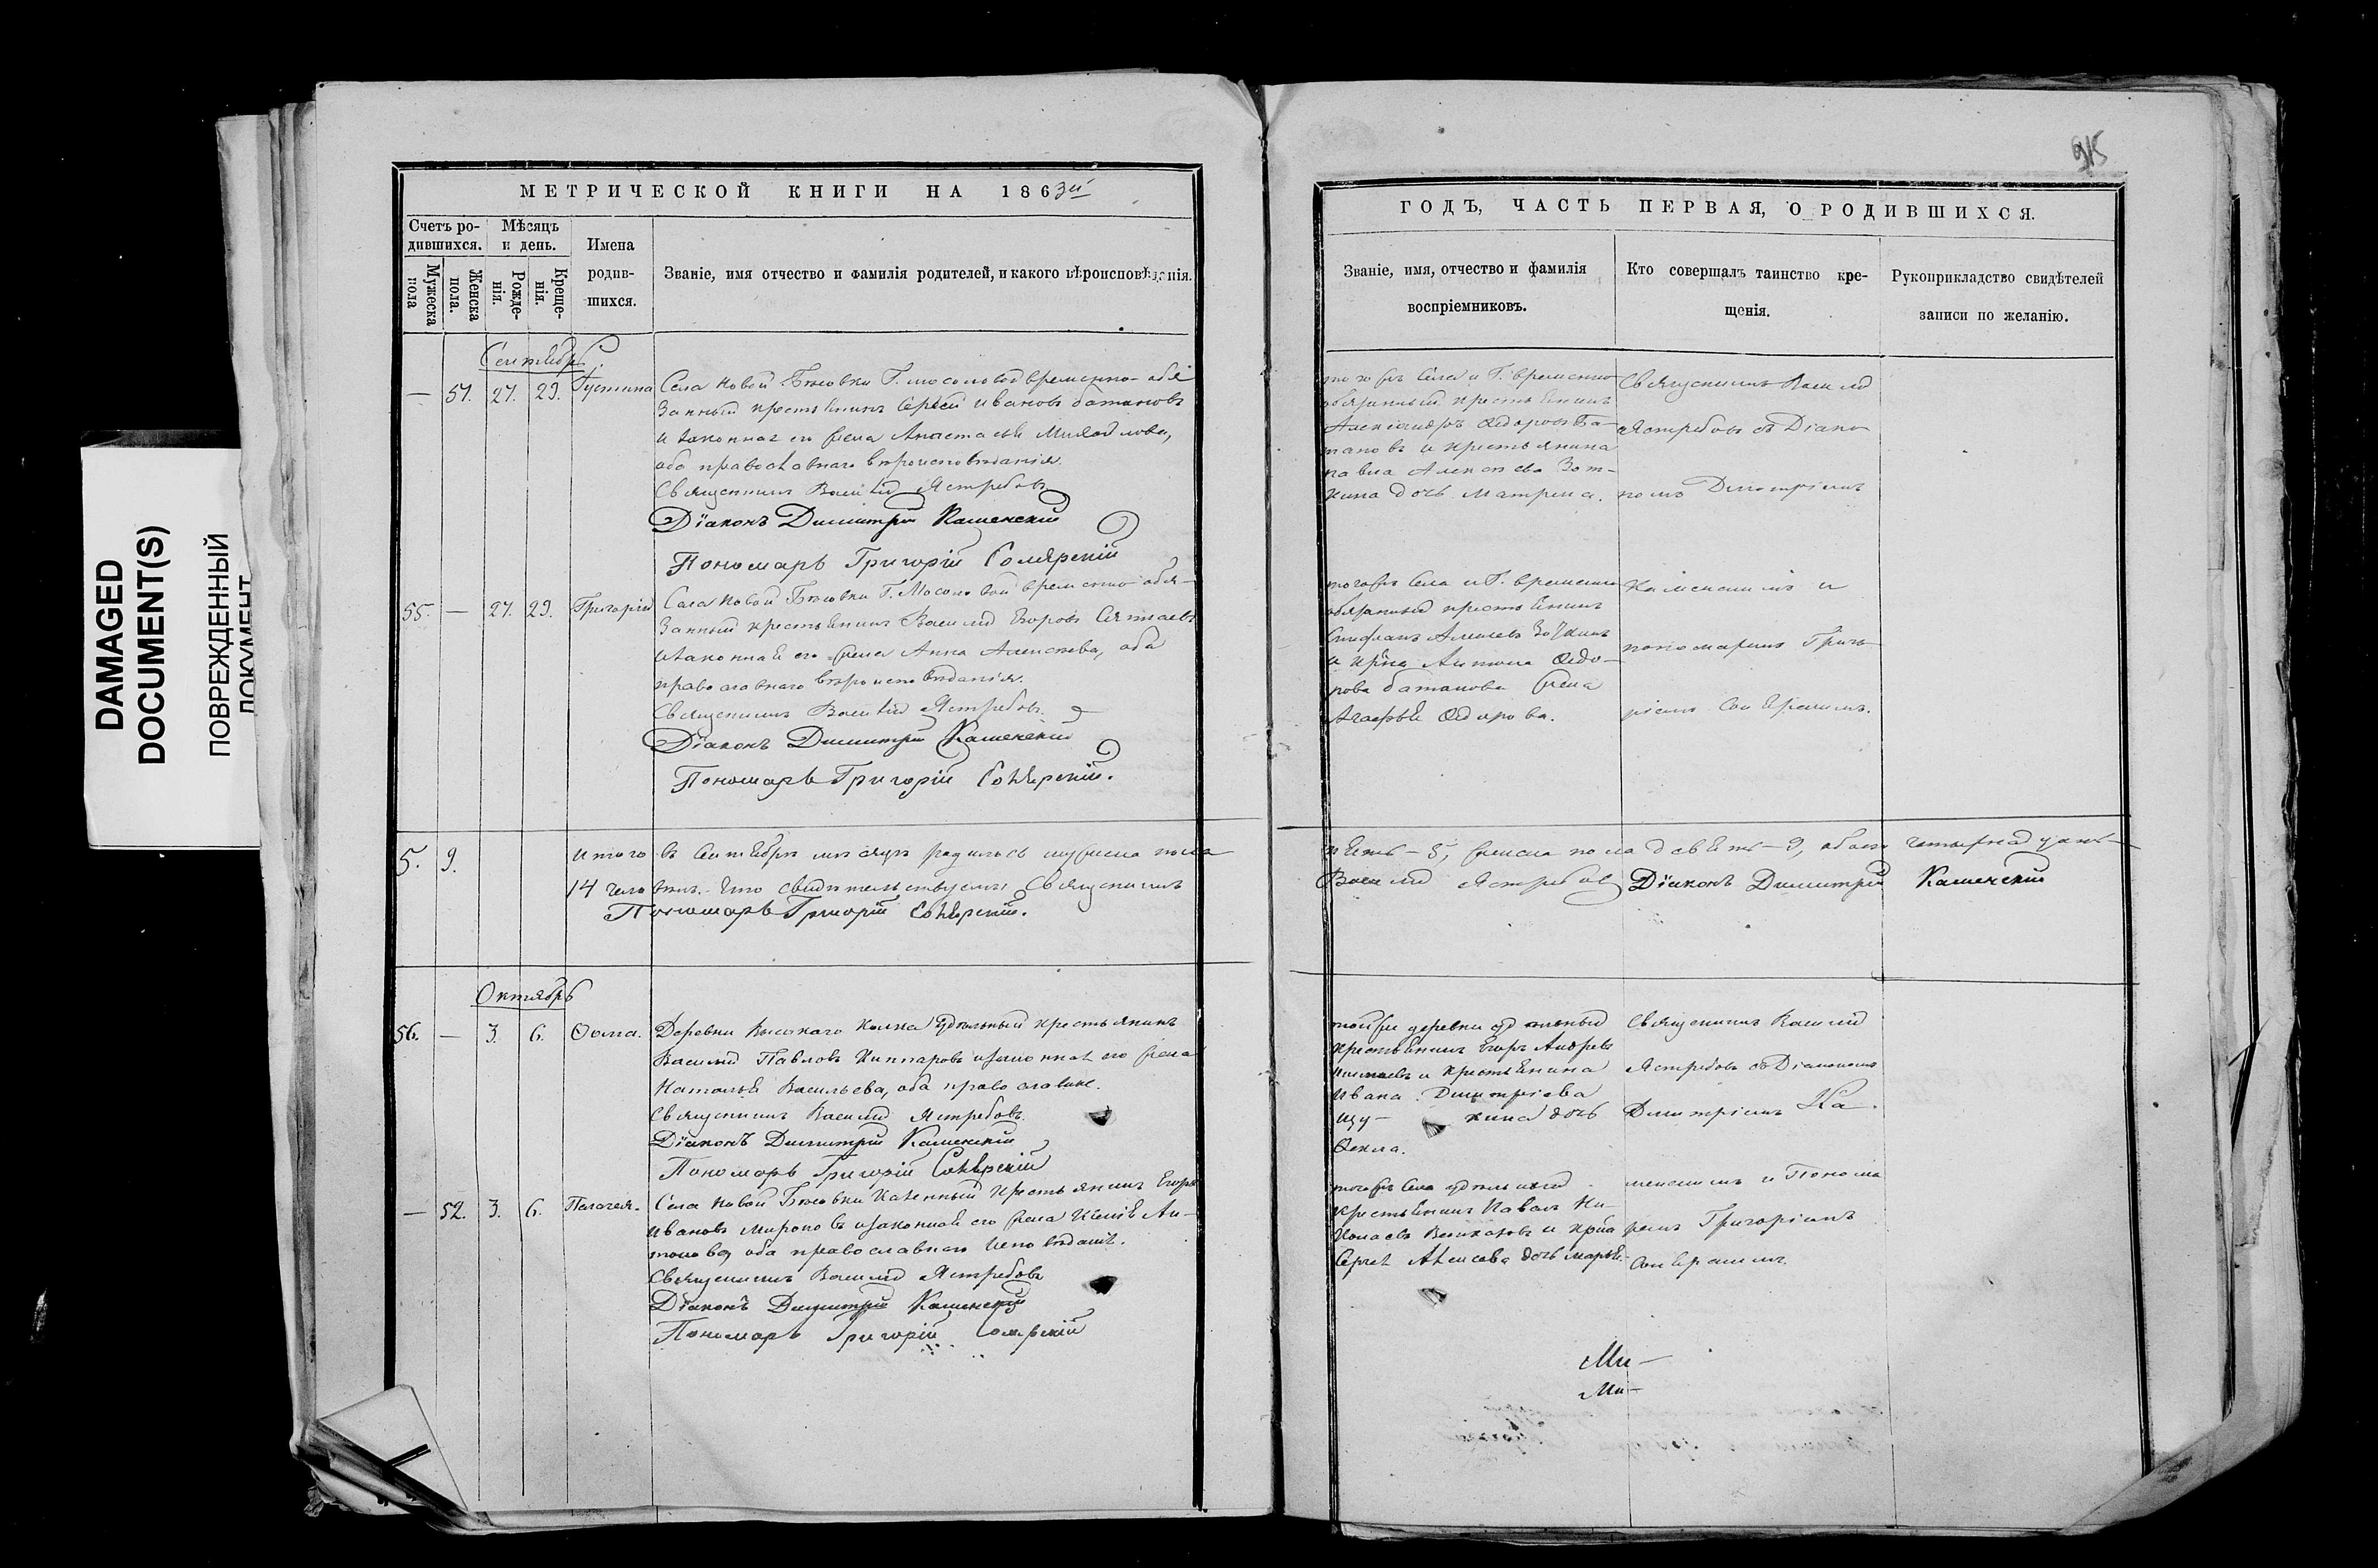 DAMAGED
DOCUMENT(S)
ПОВРЕЖДЕННЫЙ
ДОКУМЕНТ
МЕТРИЧЕСКОЙ КНИГИ НА 1863й
Счетъ ро-
дившихся.
Мѣсяцъ
и день.
Мужеска
пола
Женска
пола.
Рожде-
нія.
Креще-
нія.
Имена
родив-
шихся.
Званіе, имя отчество и фамилія родителей, и какого вѣроисповѣданія.
Сентябрь.
— 51. 27. 29. Густина
Села Новой Бѣковки Г. Мосоловой временно-обя
занный крестьянинъ Сергѣй Ивановъ Батановъ
и законная его жена Анастасья Михайлова,
оба православнаго вѣроисповѣданія.
Священникъ Василій Ястребовъ
Діаконъ Димитрій Каменскій
Пономарь Григорій Солярскій
55. — 27. 29. Григорій
Села Новой Бѣковки Г. Мосоловой временно-обя-
занный крестьянинъ Василій Егоровъ
и законная его жена Анна Алексѣева, оба
православнаго вѣроисповѣданія.
Священникъ Василій Ястребовъ.
Діаконъ Димитрій Каменскій
Пономарь Григорій Солярскій.
5. 9.
Итого въ Сентябрѣ мѣсяцѣ родилось мужеска пола
14 человѣкъ. Что свидѣтельствуемъ: Священникъ
Пономарь Григорій Солярскій.
Октябрь
56. — 3. 6. Ѳома.
Деревни Высокаго Колка удѣльный крестьянинъ
Василій Павловъ и законная его жена
Наталья Васильева, оба православные.
Священникъ Василій Ястребовъ
Діаконъ Димитрій Каменскій
Пономарь Григорій Солярскій
— 52. 3. 6. Пелагея.
Села Новой Бѣковки казенный крестьянинъ Егоръ
Ивановъ Мироновъ и законная его жена Ксенія Ан-
тонова, оба православнаго исповѣданія.
Священникъ Василій Ястребовъ
Діаконъ Димитрій Каменскій
Пономарь Григорій Солярскій
915
ГОДЪ, ЧАСТЬ ПЕРВАЯ, О РОДИВШИХСЯ.
Званіе, имя, отчество и фамилія
воспріемниковъ.
Кто совершалъ таинство кре-
щенія.
Рукоприкладство свидѣтелей
записи по желанію.
того жъ Села и Г. временно
обязанный крестьянинъ
Александръ Ѳедоровъ Ба-
тановъ и крестьянина
Павла Алексѣева Зот-
кина дочь Матрена.
Священникъ Василій
Ястребовъ съ Діако-
номъ Димитріемъ
того жъ Села и Г. временно
обязанный крестьянинъ
Стефанъ
и крна Антона Ѳедо-
рова Батанова жена
Агафья Ѳедорова.
Каменскимъ и
пономаремъ Григо-
ріемъ Солярскимъ.
пять — 5, женска пола девять — 9, обоего четырнадцать
Василій Ястребовъ Діаконъ Димитрій Каменскій
той же деревни удѣльный
крестьянинъ Егоръ Андреевъ
и крестьянина
Ивана Димитріева
Щу- кина дочь
Ѳекла.
Священникъ Василій
Ястребовъ съ Діакономъ
Димитріемъ Ка-
того жъ Села удѣльный
крестьянинъ Павелъ Ни-
колаевъ и крна
Сергея Алексѣева дочь Марья.
менскимъ и Понома
ремъ Григоріемъ
Солярскимъ.
Ми-
Ми-